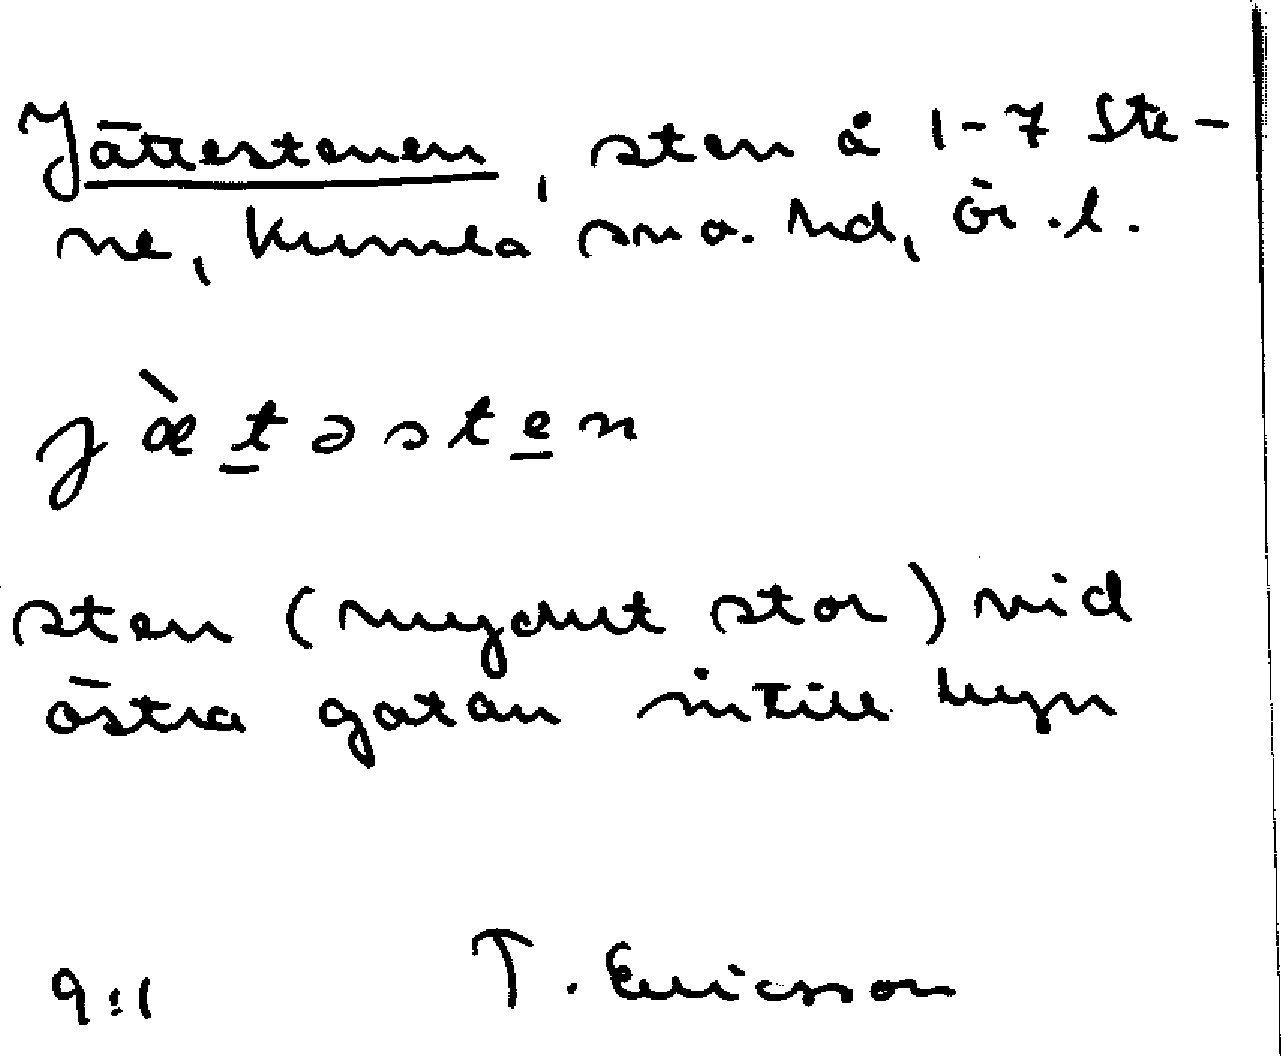 Jättestenen, sten å 1-7 Ste-
ne, Kumla sn o. hd, Ör. l.
jæ̀t̲əste̲n
sten (mycket stor) vid
östra gatan intill byn
9:1 T. Ericsson